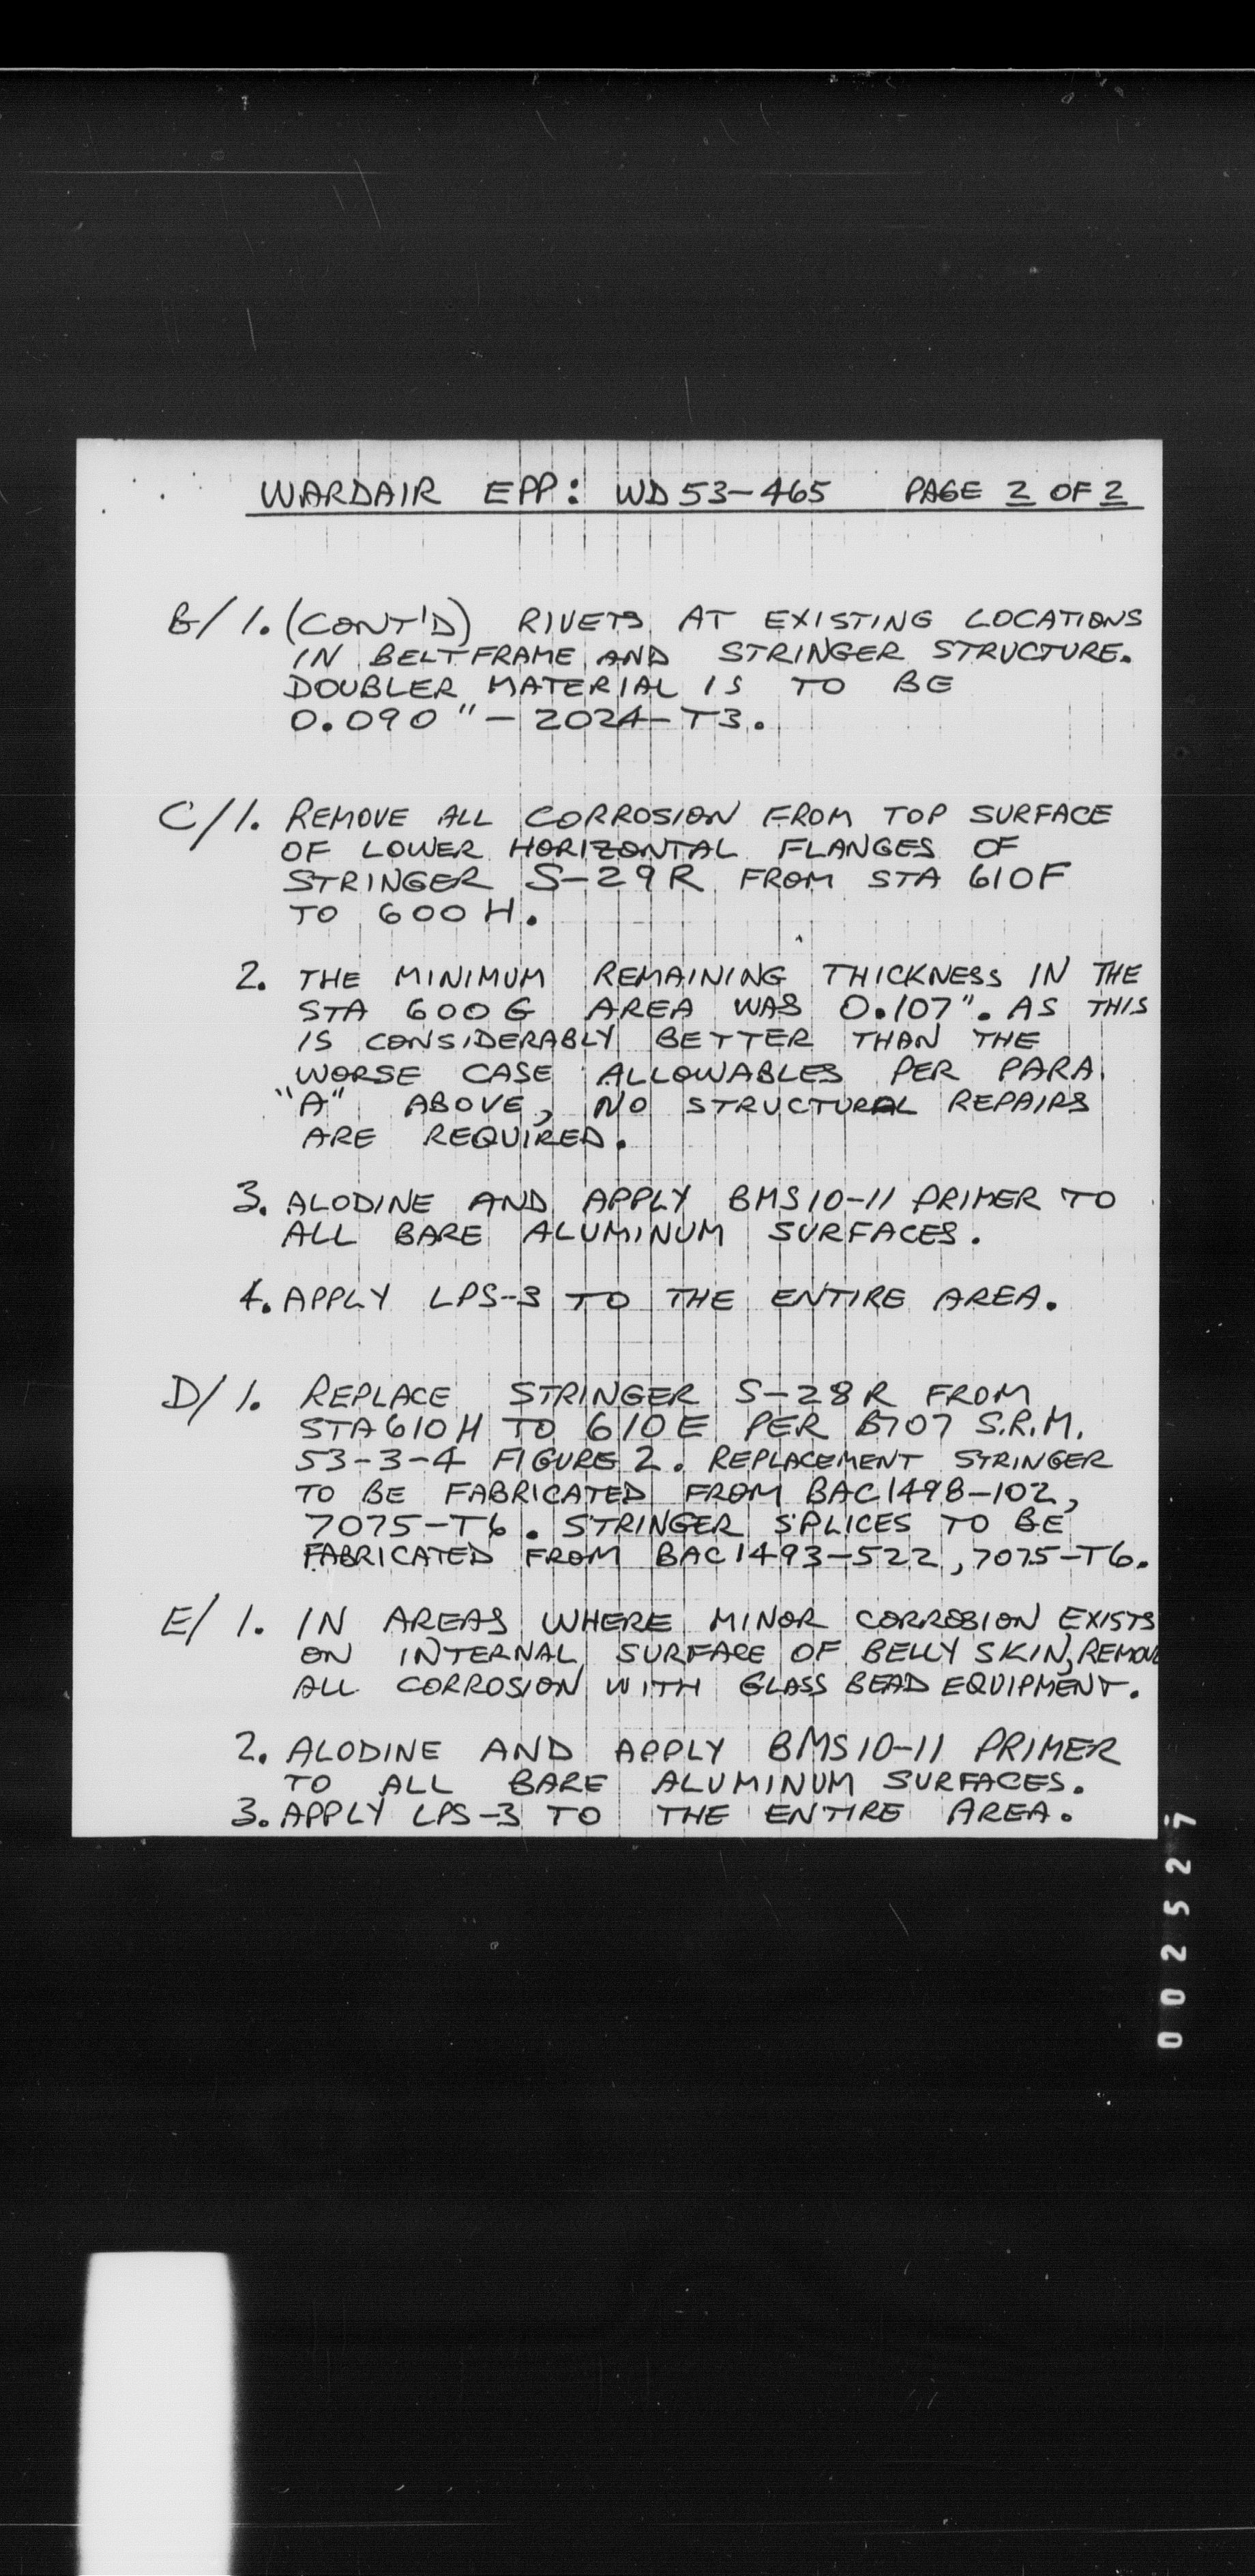 WARDAIR EPP: WD53-465 PAGE 2 OF 2
B/ 1. (CONT'D) RIVETS AT EXISTING LOCATIONS
IN BELTFRAME AND STRINGER STRUCTURE.
DOUBLER MATERIAL IS TO BE
0.090" - 2024-T3.
C/ 1. REMOVE ALL CORROSION FROM TOP SURFACE
OF LOWER HORIZONTAL FLANGES OF
STRINGER S-29R FROM STA 610F
TO 600H.
2. THE MINIMUM REMAINING THICKNESS IN THE
STA 600G AREA WAS 0.107". AS THIS
IS CONSIDERABLY BETTER THAN THE
WORSE CASE ALLOWABLES PER PARA.
"A" ABOVE, NO STRUCTURAL REPAIRS
ARE REQUIRED.
3. ALODINE AND APPLY BMS10-11 PRIMER TO
ALL BARE ALUMINUM SURFACES.
4. APPLY LPS-3 TO THE ENTIRE AREA.
D/ 1. REPLACE STRINGER S-28R FROM
STA 610H TO 610E PER B707 S.R.M.
53-3-4 FIGURE 2. REPLACEMENT STRINGER
TO BE FABRICATED FROM BAC1498-102,
7075-T6. STRINGER SPLICES TO BE
FABRICATED FROM BAC1493-522, 7075-T6.
E/ 1. IN AREAS WHERE MINOR CORROSION EXISTS
ON INTERNAL SURFACE OF BELLY SKIN, REMOVE
ALL CORROSION WITH GLASS BEAD EQUIPMENT.
2. ALODINE AND APPLY BMS10-11 PRIMER
TO ALL BARE ALUMINUM SURFACES.
3. APPLY LPS-3 TO THE ENTIRE AREA.
002527